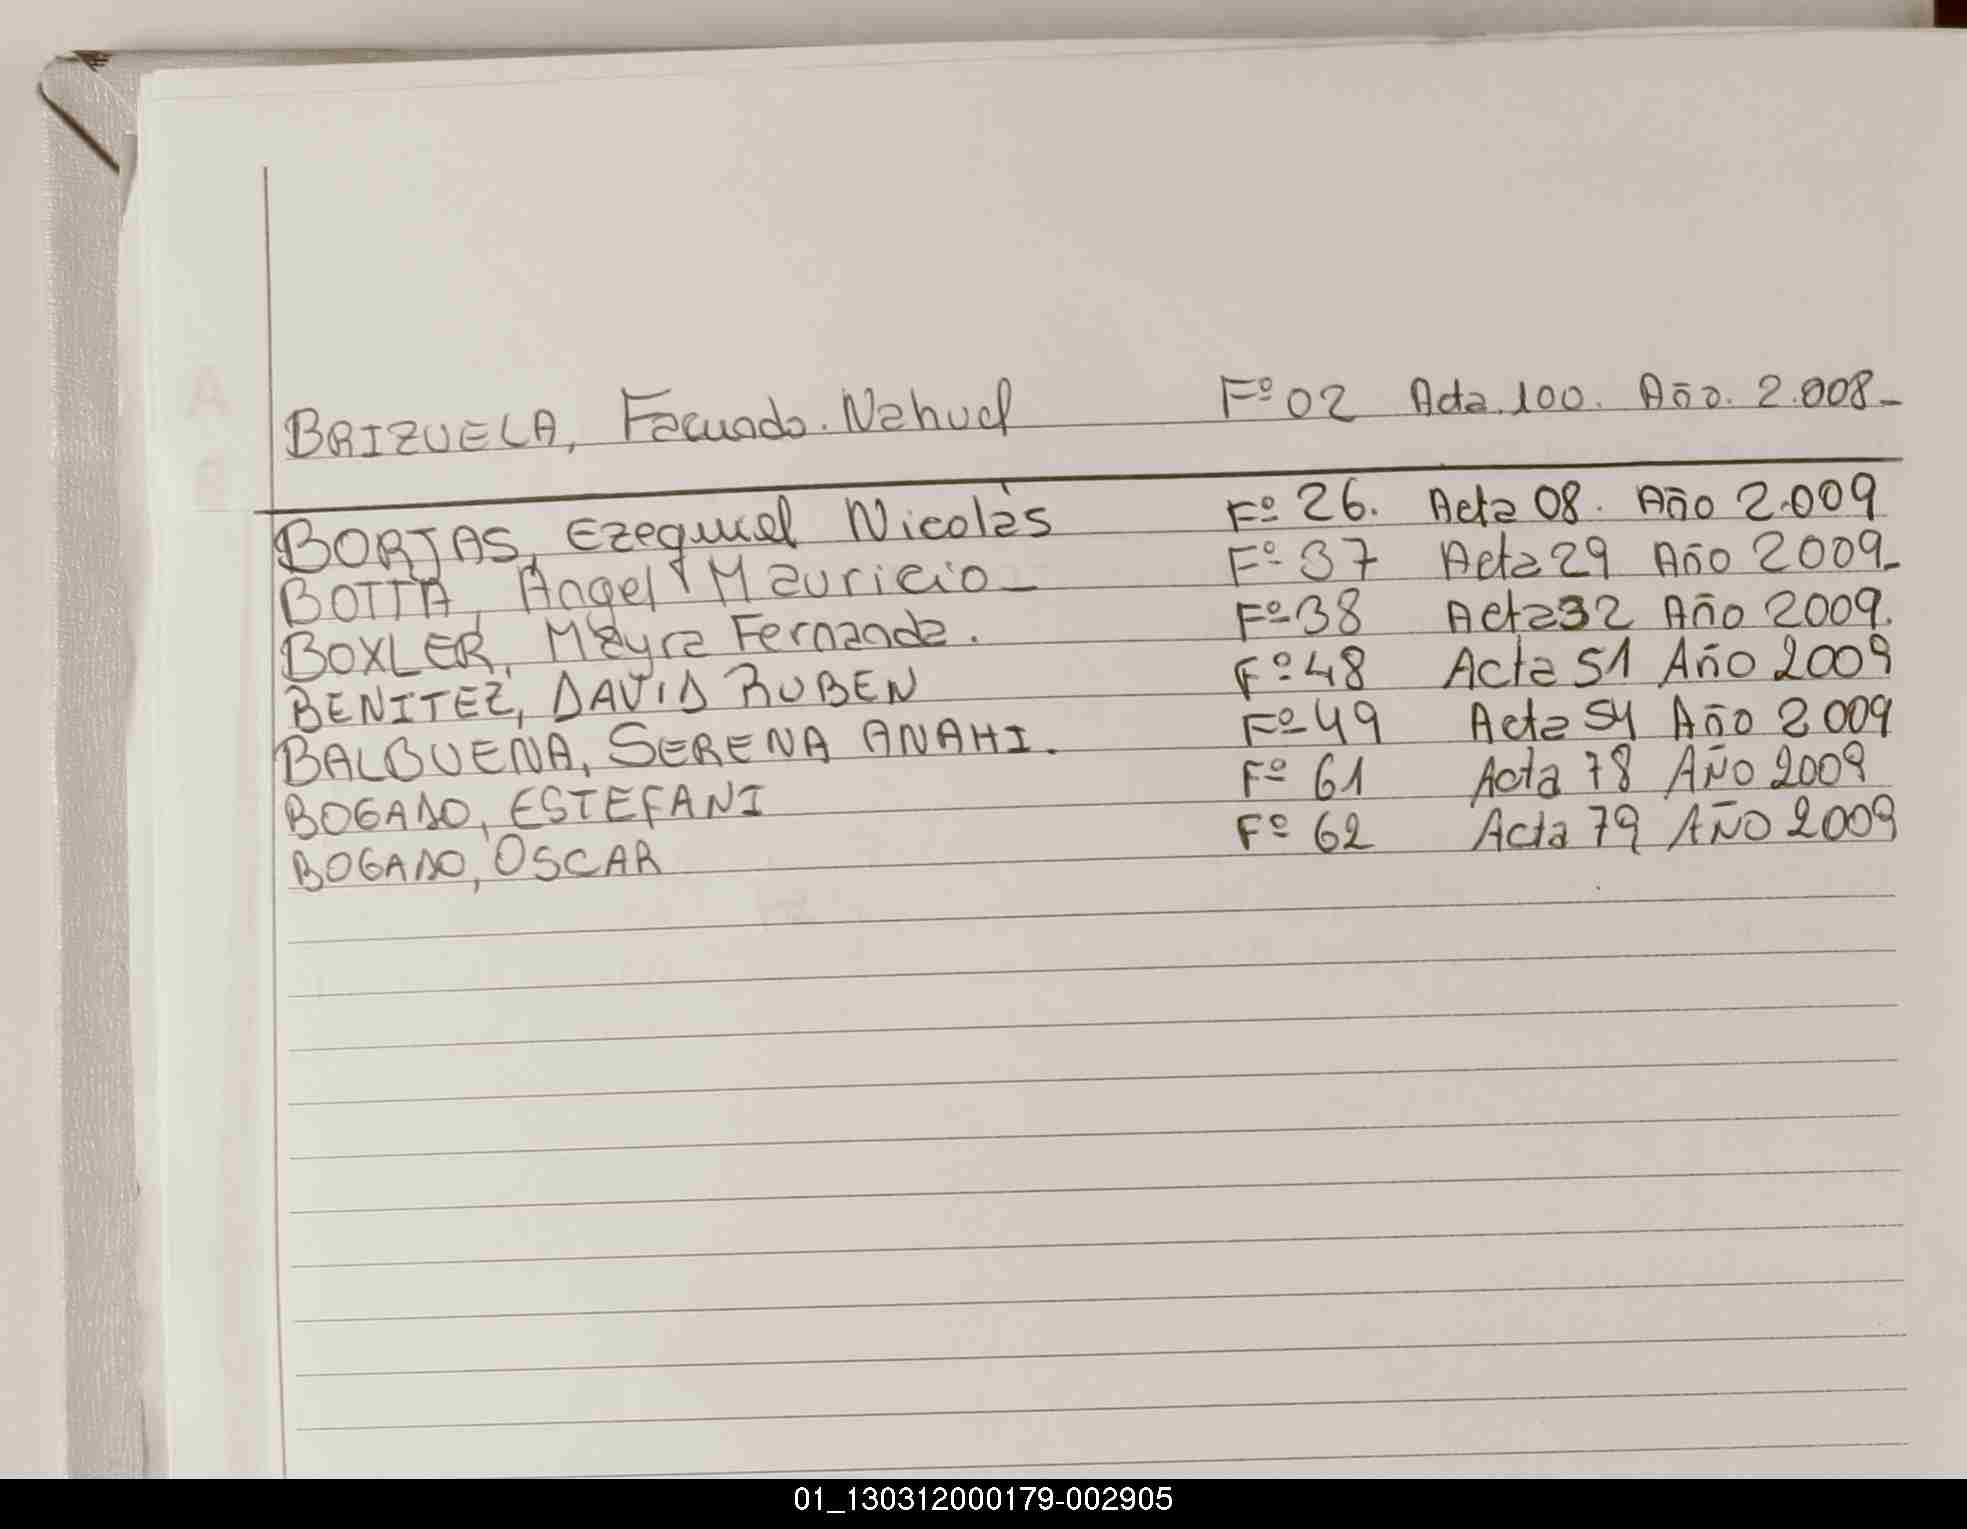 BRIZUELA, Facundo. Nahuel F° 02 Acta. 100. Año. 2.008-
BORJAS, Ezequiel Nicolás Fº 26. Acta 08. Año 2.009
BOTTA, Angel Mauricio- Fº 37 Acta 29 Año 2009-
BOXLER, Mayra Fernanda. Fº 38 Acta 32 Año 2009.
BENITEZ, DAVID RUBEN Fº 48 Acta 51 Año 2009
BALBUENA, SERENA ANAHI. Fº 49 Acta 54 Año 2009
BOGADO, ESTEFANI Fº 61 Acta 78 AÑO 2009
BOGADO, OSCAR Fº 62 Acta 79 AÑO 2009
01_130312000179-002905